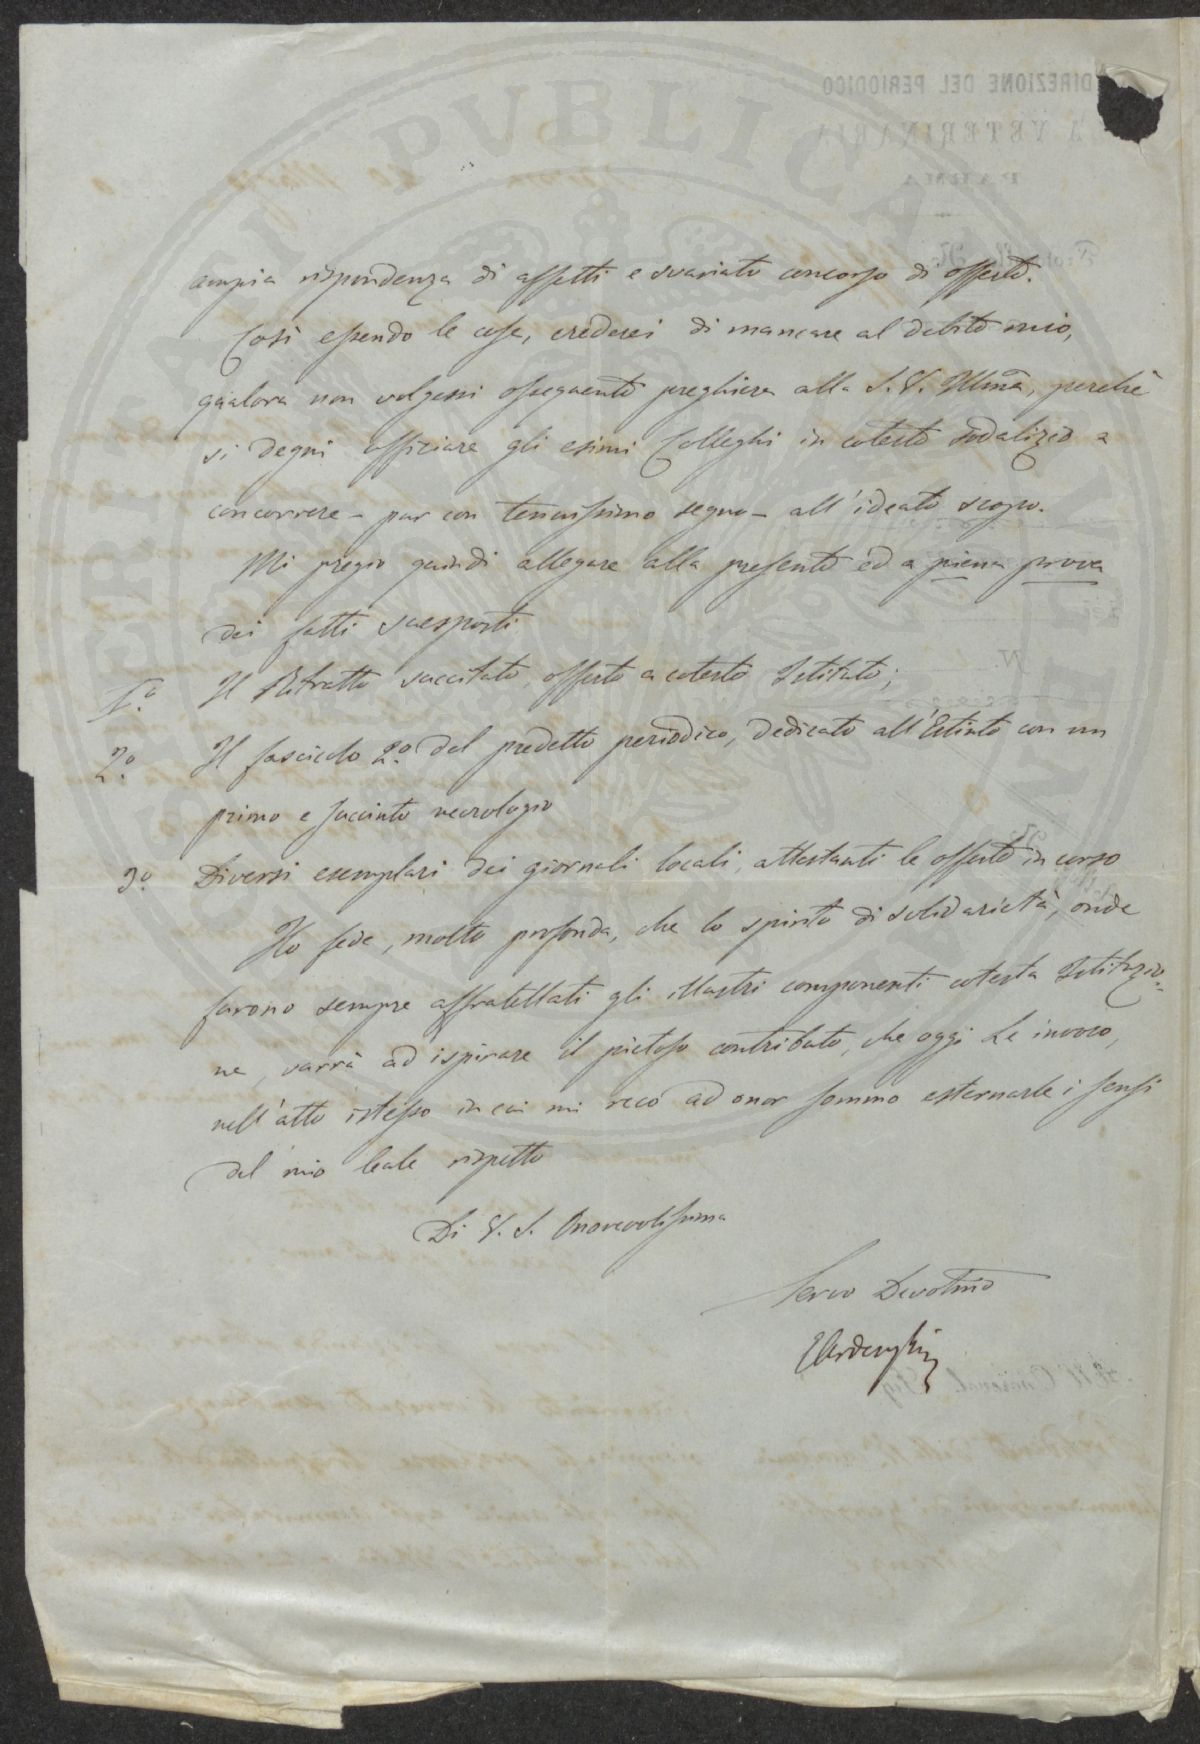 ampia rispondenza di affetti e svariato concorso di offerte.
Così essendo le cose, crederei di mancare al debito mio,
qualora non volgessi ossequente preghiera alla S. V. Illma, perchè
si degni officiare gli esimi Colleghi in cotesto sodalizio a
concorrere – pur con tenuissimo segno – all'ideato scopo.
Mi pregio quindi allegare alla presente ed a piena prova
dei fatti suesposti
1.o Il Ritratto succitato, offerto a cotesto Istituto;
2.o Il fascicolo 2.o del predetto periodico, dedicato all'Estinto con un
primo e succinto necrologio
3.o Diversi esemplari dei giornali locali, attestanti le offerte in corso
Ho fede, molto profonda, che lo spirito di solidarietà, onde
furono sempre affratellati gli illustri componenti cotesta Istituzio-
ne, varrà ad ispirare il pietoso contributo, che oggi Le invoco,
nell'atto istesso in cui mi reco ad onor sommo esternarle i sensi
del mio leale rispetto
Di V. S. Onorevolissima
Servo Devotmo
DIREZIONE DEL PERIODICO
LA VETERINARIA
PARMA